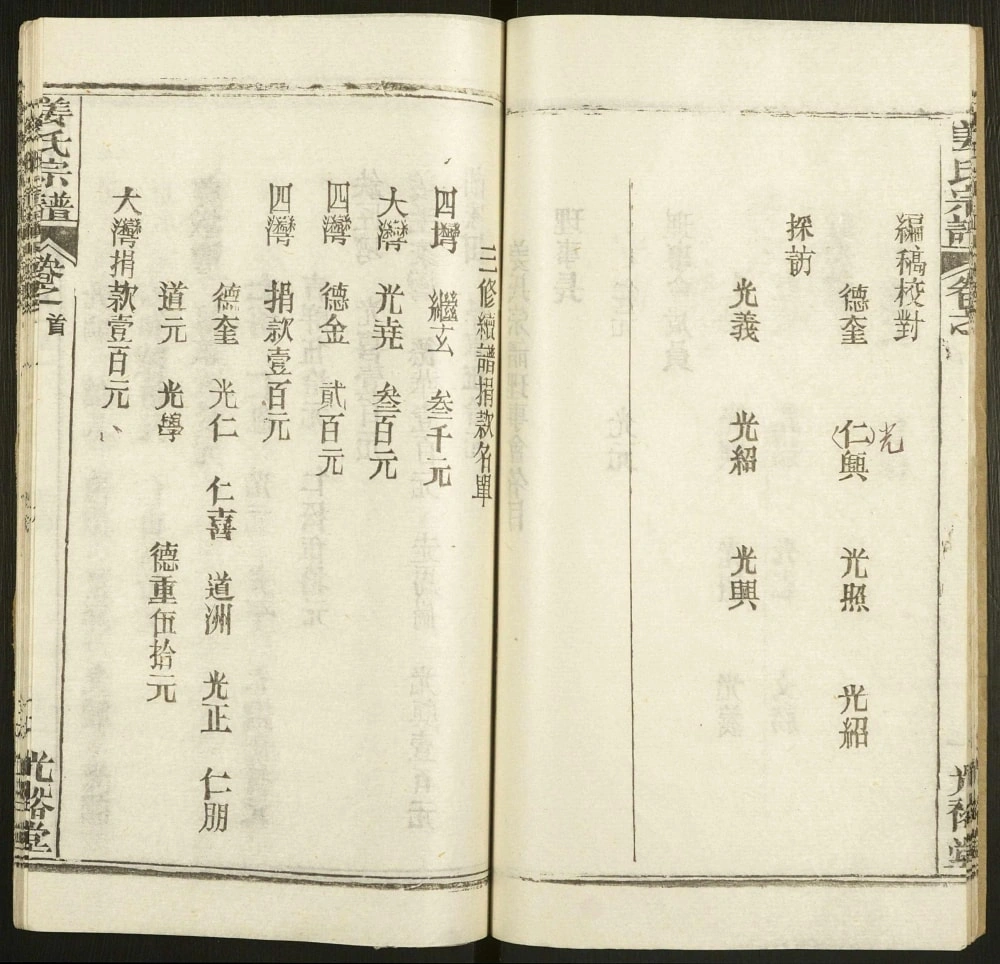 姜氏宗譜
光裕堂
編稿校對
德奎 仁興 光照 光紹
光
探訪
光義 光紹 光興
三修續譜捐款名單
四灣 繼玄 叁千元
大灣 光堯 叁百元
四灣 德金 貳百元
四灣 捐款壹百元
德奎 光仁 仁喜 道洲 光正 仁朋
道元 光學 德重伍拾元
大灣捐款壹百元
姜氏宗譜 卷一首
光裕堂